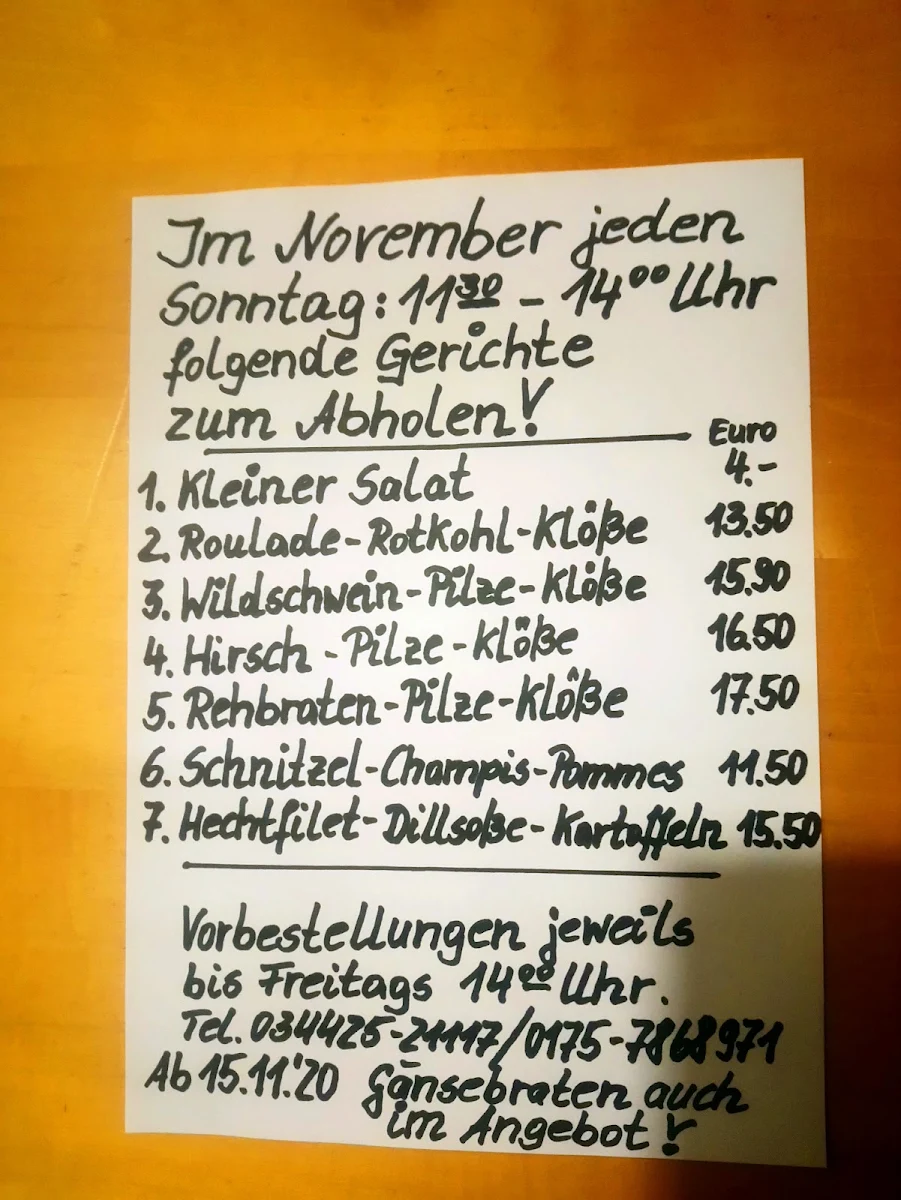 Im November jeden
Sonntag: 11³⁰ - 14⁰⁰ Uhr
folgende Gerichte
zum Abholen!
Euro
1. Kleiner Salat 4.-
2. Roulade-Rotkohl-Klöße 13.50
3. Wildschwein-Pilze-Klöße 15.90
4. Hirsch-Pilze-Klöße 16.50
5. Rehbraten-Pilze-Klöße 17.50
6. Schnitzel-Champis-Pommes 11.50
7. Hechtfilet-Dillsoße-Kartoffeln 15.50
Vorbestellungen jeweils
bis Freitags 14⁰⁰ Uhr.
Tel. 034425-21117/0175-7868971
Ab 15.11.'20 Gänsebraten auch
im Angebot!